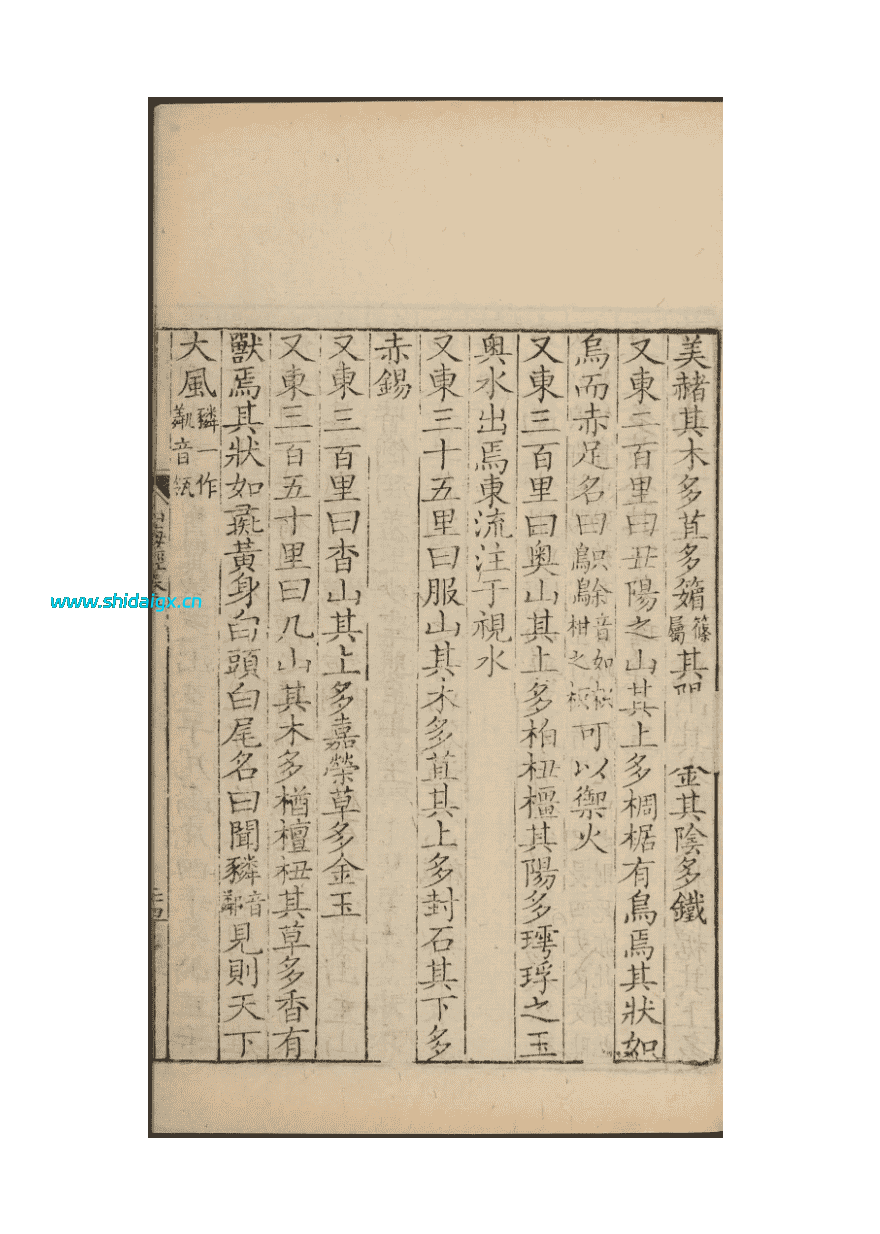 美赭其木多苴多䉋篠屬其 金其陰多鐵
又東二百里曰丑陽之山其上多椆椐有鳥焉其狀如
烏而赤足名曰䳅鵌音如枳柑之枳可以禦火
又東三百里曰奧山其上多柏杻橿其陽多㻬琈之玉
奧水出焉東流注于視水
又東三十五里曰服山其木多苴其上多封石其下多
赤錫
又東三百里曰杳山其上多嘉榮草多金玉
又東三百五十里曰几山其木多楢檀杻其草多香有
獸焉其狀如彘黃身白頭白尾名曰聞䝰音鄰見則天下
大風䝰一作音瓴
山海經
www.shidaigx.cn